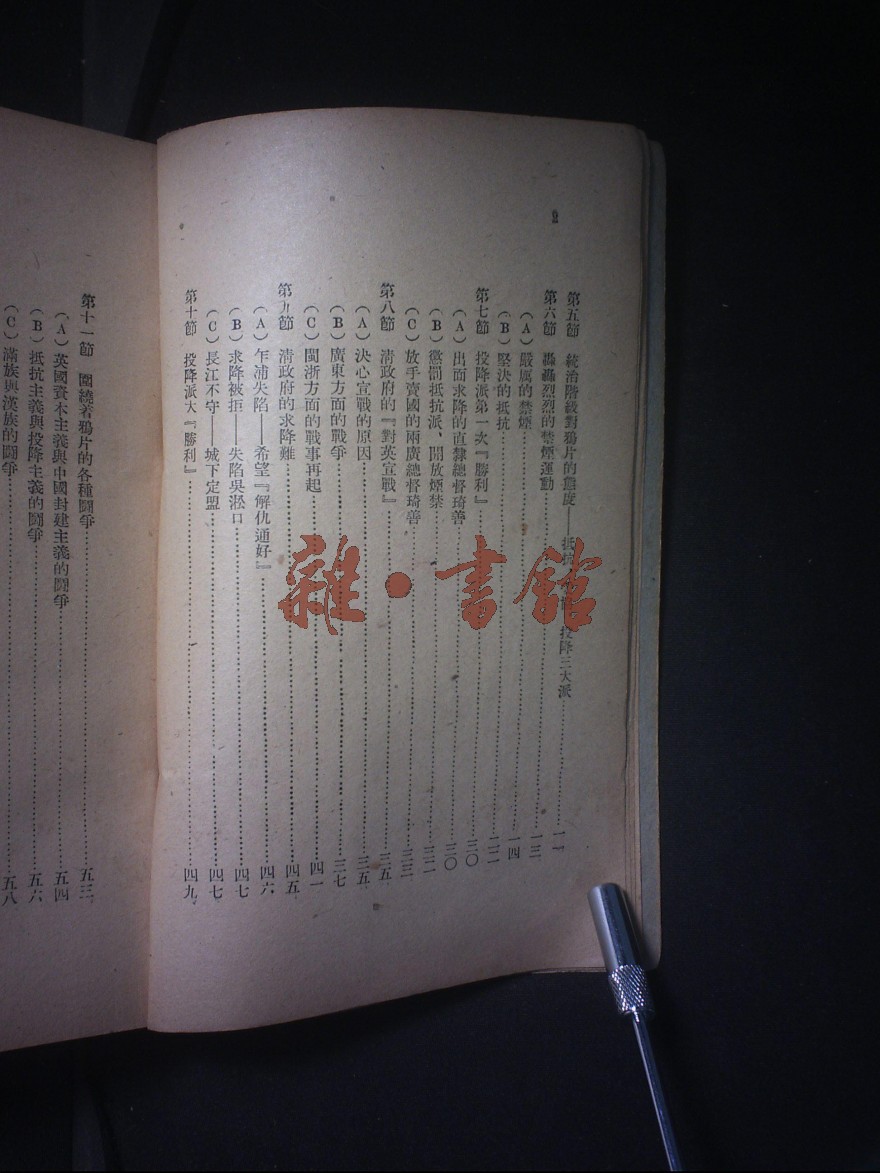 2
第五節 統治階級對鴉片的態度——抵抗 投降三大派
第六節 轟轟烈烈的禁煙運動……一三
(A)嚴厲的禁煙……一四
(B)堅決的抵抗……二二
第七節 投降派第一次『勝利』……三〇
(A)出面求降的直隸總督琦善……三〇
(B)懲罰抵抗派、開放煙禁……三二
(C)放手賣國的兩廣總督琦善……三三
第八節 清政府的『對英宣戰』……三五
(A)決心宣戰的原因……三五
(B)廣東方面的戰爭……三七
(C)閩浙方面的戰事再起……四一
第九節 清政府的求降難……四五
(A)乍浦失陷——希望『解仇通好』……四六
(B)求降被拒——失陷吳淞口……四七
(C)長江不守——城下定盟……四七
第十節 投降派大『勝利』……四九
第十一節 圍繞着鴉片的各種鬪爭……五三
(A)英國資本主義與中國封建主義的鬪爭……五四
(B)抵抗主義與投降主義的鬪爭……五六
(C)滿族與漢族的鬪爭……五八
雜·書館